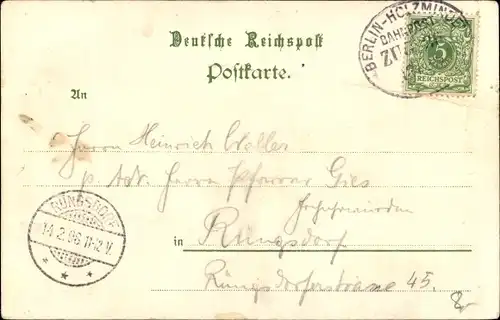 Deutsche Reichspost
Postkarte.
BERLIN-HOLZMINDEN
BAHNPOST
ZUG
5
REICHSPOST
An
Herrn Heinrich
p. Adr. Herrn Pfarrer Gies
in Rüngsdorf
Rüngsdorferstrasse 45.
RÜNGSDORF
14.2.96 11-12 V.